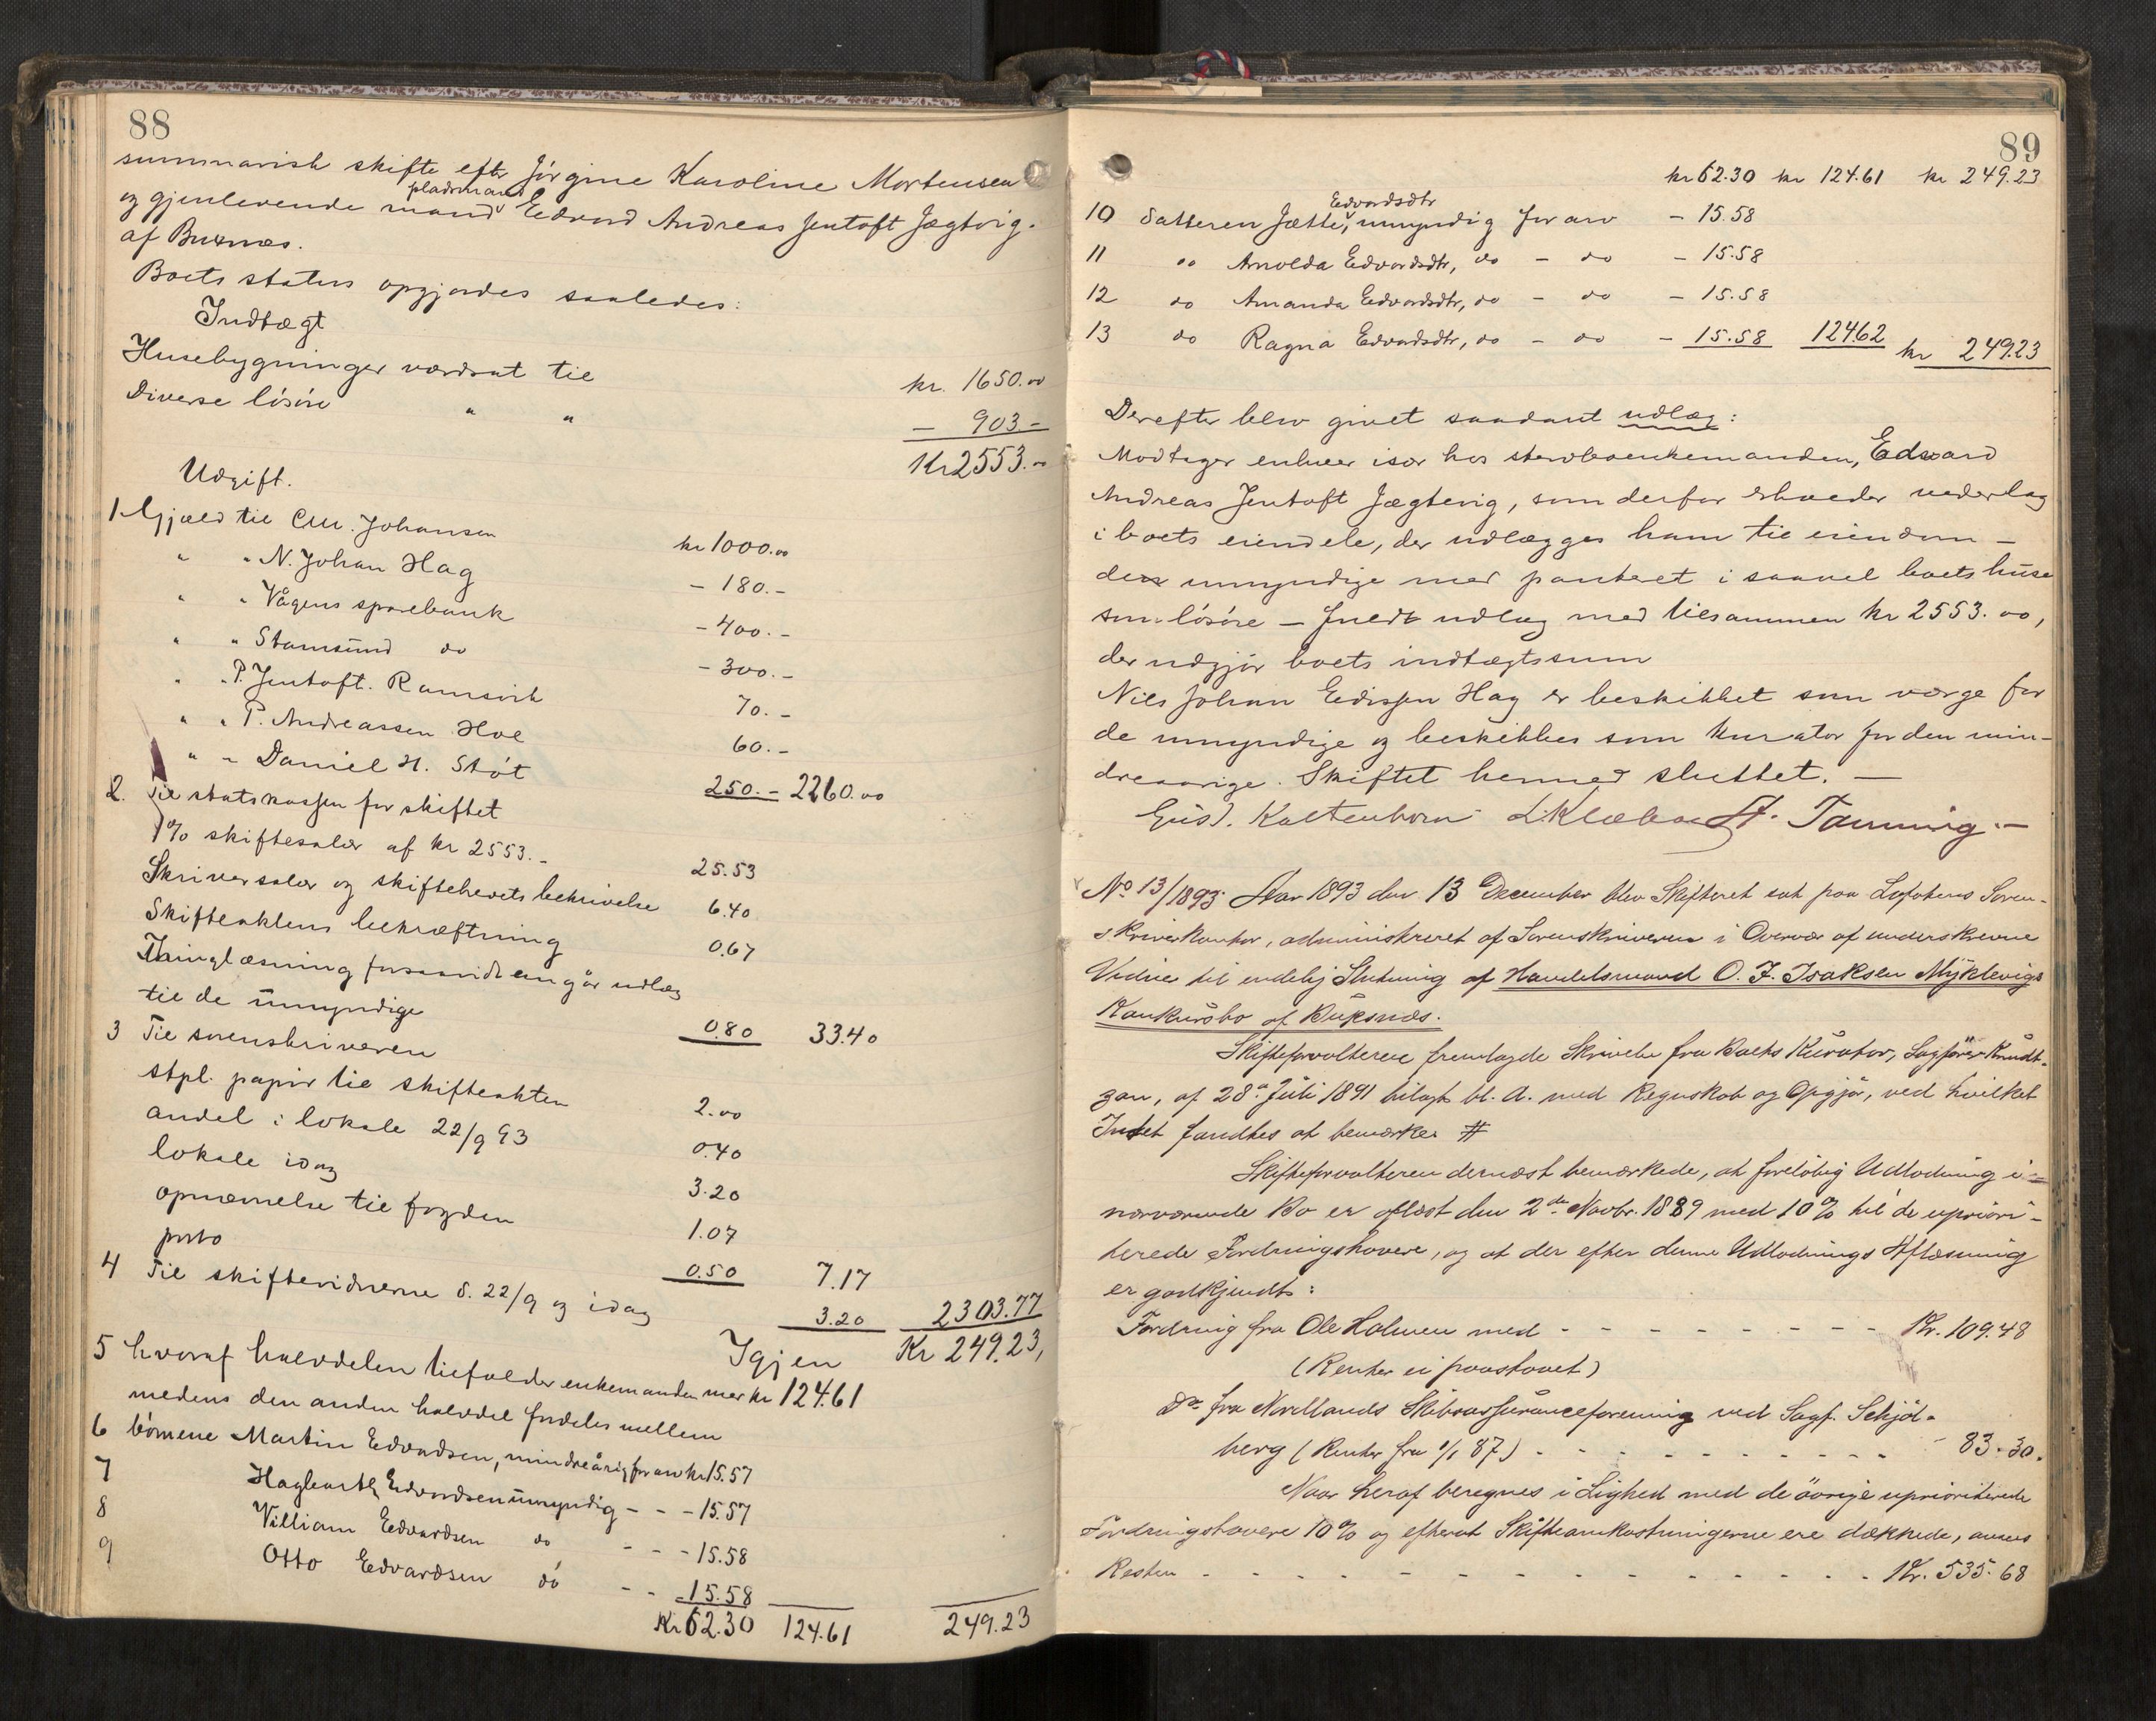 88
summarisk skifte efter Jörgine Karoline Mortensen
og gjenlevende pladsmand mand Edvard Andreas Jentoft Jægtvig
af Buxnæs.
Boets status opgjordes saaledes:
Indtægt
Husebygninger værdsat til kr. 1650.00
Diverse lösöre " " - 903.-
Kr 2553.-
Udgift.
1. Gjæld til Chr. Johansen kr 1000.00
" " N. Johan Hag - 180.-
" " Vågens sparebank - 400.-
" " Stamsund do - 300.-
" " P. Jentoft. Ramsvik 70.-
" " P. Andreassen Hol 60.-
" " Daniel H. Støt 250.- 2260.00
2. Til statskassen for skiftet
1% skiftesalær af kr 2553.- 25.53
Skriversalær og skiftebrevets beskrivelse 6.40
Skifteaktens bekræftning 0.67
Thinglæsning forsaavidt angår udlæg
til de umyndige 0.80 33.40
3 Til sorenskriveren
stpl. papir til skifteakten 2.00
andel i lokale 22/9 93 0.40
lokale idag 3.20
opnævnelse til fogden 1.07
porto 0.50 7.17
4 Til skiftevidnerne d. 22/9 og idag 3.20 2303.77
Igjen Kr 249.23,
5 hvoraf halvdelen tilfalder enkemanden med kr 124.61
medens den anden halvdel fordeles mellem
6 börnene Martin Edvardsen, mindreårig for arv kr 15.57
7 Hagbart Edvardsen umyndig - - - 15.57
8 Villiam Edvardsen do - - - 15.58
9 Otto Edvardsen do - - 15.58
Kr 62.30 124.61 249.23
89
kr 62.30 kr 124.61 kr 249.23
10 Datteren Jætte Edvardsdtr, umyndig for arv - 15.58
11 do Arnolda Edvardsdtr, do - do - 15.58
12 do Amanda Edvardsdtr, do - do - 15.58
13 do Ragna Edvardsdtr, do - do - 15.58 124.62 kr 249.23
Derefter blev givet saadant udlæg:
Modtager enhver især hos stervboenkemanden, Edvard
Andreas Jentoft Jægtvig, som derfor erholder vederlag
i boets eiendele, der udlægges ham til eiendom -
de umyndige med panteret i saavel boets huse
som lösöre - fuldt udlæg med tilsammen kr 2553.00,
der udgjör boets indtægtssum
Nils Johan Edissen Hag er beskikket som værge for
de umyndige og beskikkes som kurator for den min-
dreaarige. Skiftet hermed sluttet. -
Gust. Kaltenborn L. Klæboe A. Tanning. -
No 13/1893. Aar 1893 den 13 December blev Skifteret sat paa Lofotens Soren-
skriverkontor, administreret af Sorenskriveren i Overvær af underskrevne
Vidner til endelig Slutning af Handelsmand O. J. Isaksen Myklevigs
Konkursbo af Buksnæs.
Skifteforvalteren fremlagde Skrivelse fra Boets Kurator, Sagförer Knudt-
zon, af 28de Juli 1891 bilagt bl. a. med Regnskab og Opgjör, ved hvilket
Intet fandtes at bemærke #
Skifteforvalteren dernæst bemærkede, at foreløbig Udlodning i
nærværende Bo er aflæst den 2den Novbr. 1889 med 10% til de upriori-
terede Fordringshavere, og at der efter denne Udlodnings Aflæsning
er godkjendt:
Fordring fra Ole Holmen med - - - - - - - - - Kr. 109.48
(Renter ei paastaaet)
Do fra Nordlands Skibsassuranceforening ved Sagf. Schjöl-
berg (Renter fra 1/1 87) - - - - - - - - - - 83.30.
Naar heraf beregnes i Lighed med de övrige uprioriterede
Fordringshavere 10% og efterat Skifteomkostningerne ere dækkede,
Resten - - - - - - - - - - - - Kr. 535.68